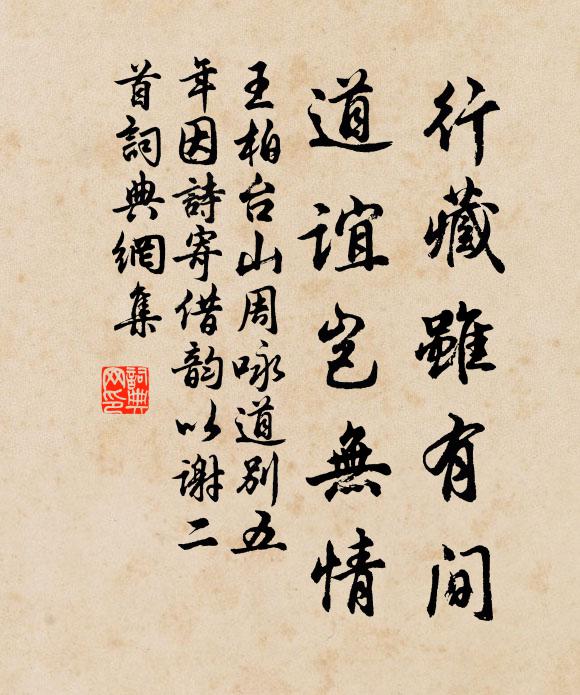 行藏雖有間
道誼豈無情
王柏台山周咏道别五
年因詩寄借韵以谢二
首詞典網集
詞典网印